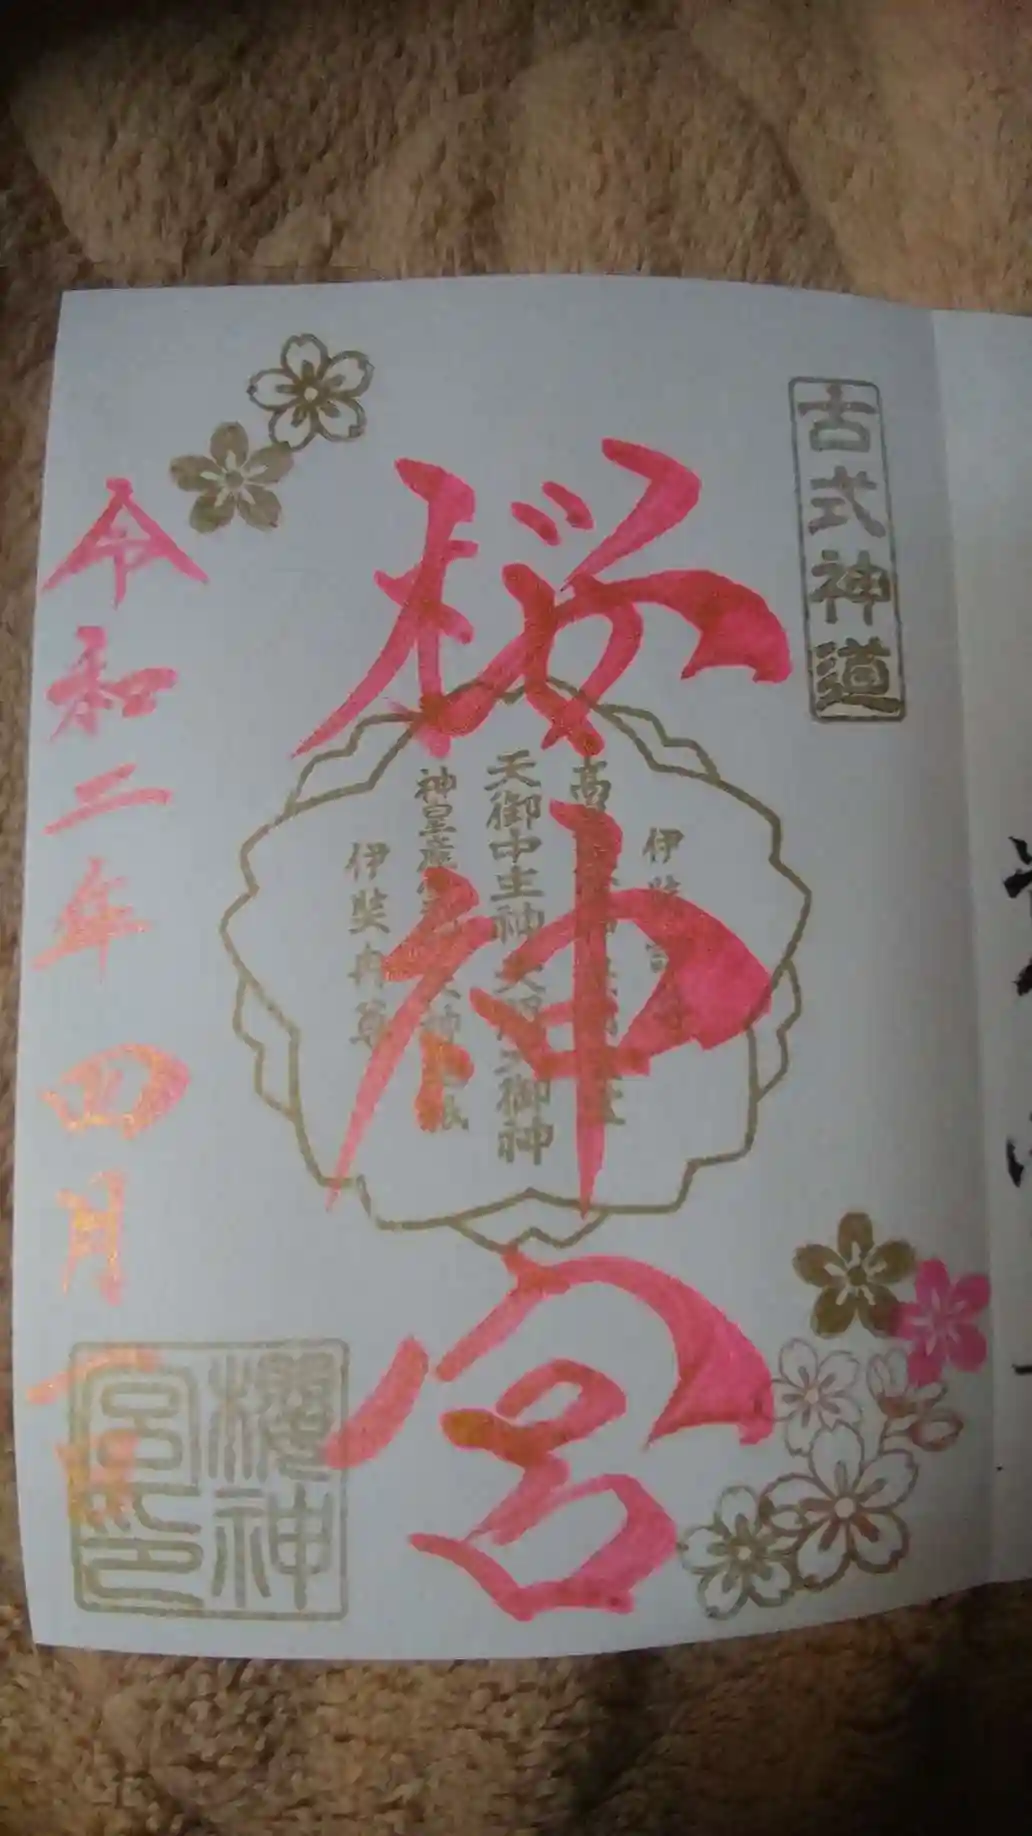 古式神道
桜神宮
伊弉
高
天御中主神 天照 御神
神皇産 神
伊弉冉尊
令和二年四月一日
櫻神
宮印